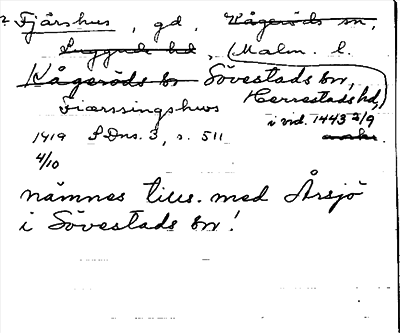 ? Fjärshus, gd, Kågeröds sn,
Luggude hd, (Malm. l.
Kågeröds sn Sövestads sn,
Fiærssingshws Herrestads hd,)
i vid. 1443 2/9
1419 SDns. 3, s. 511
4/10
nämnes tills. med Årsjö
i Sövestads sn!